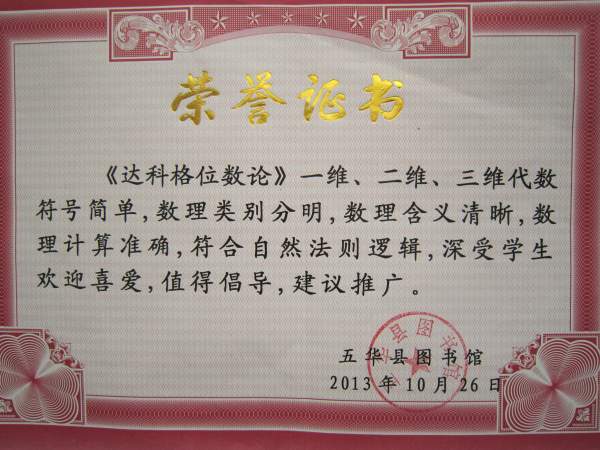 荣誉证书
《达科格位数论》一维、二维、三维代数
符号简单,数理类别分明,数理含义清晰,数
理计算准确,符合自然法则逻辑,深受学生
欢迎喜爱,值得倡导,建议推广。
五华县图书馆
2013年10月26日
五华县图书馆